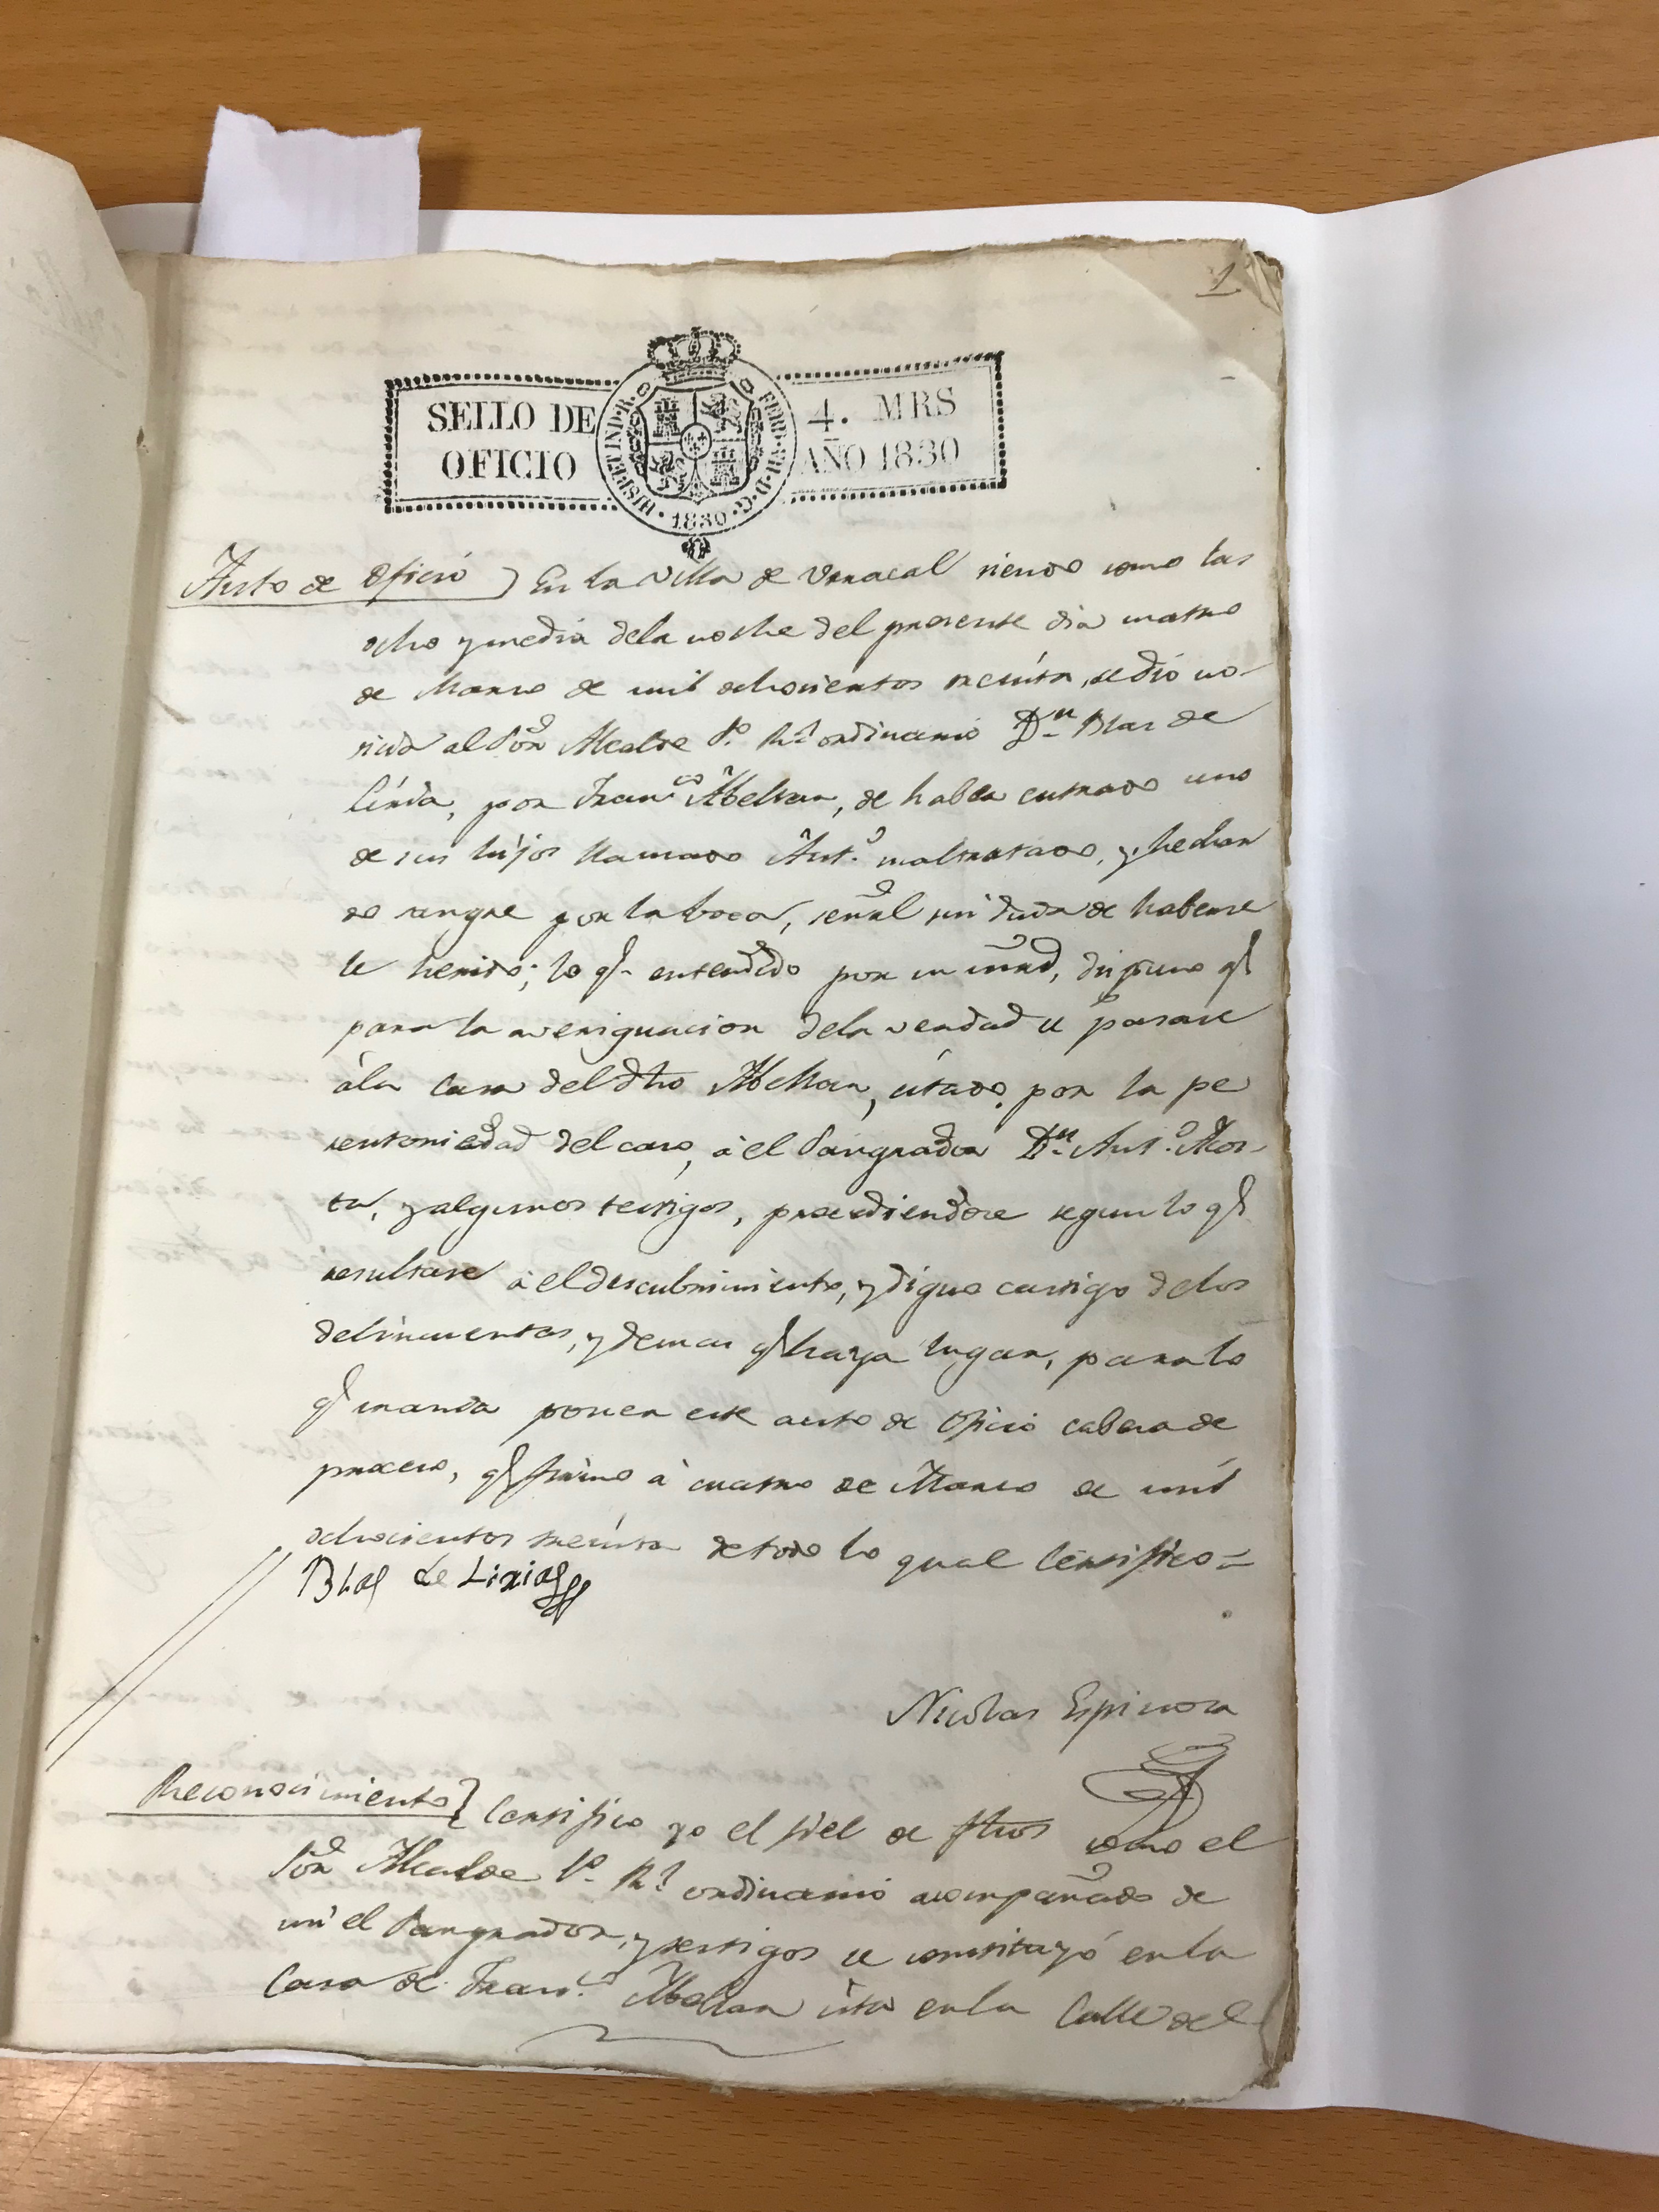 1.
SELLO DE OFICIO
4. MRS AÑO 1830
HISP.ET IND.R. FERD.VII.D.G. 1830
Auto de Oficio } En la Villa de Venacal siendo como las
ocho y media dela noche del presente dia cuatro
de Marzo de mil ochocientos treinta, se dió no-
ticia al Sor. Alcalde 1º. Rl. ordinario Dn. Blas de
Liria, por Franco. Abellan, de haber entrado uno
de sus hijos llamado Anto. maltratado, y hechan
do sangre por la boca, señal sin duda de haberse
le herido; lo ql. entendido por su mrd, dispuso ql
para la averiguacion dela verdad se pasase
ála Casa del dho Abellan, citado, por la pe
rentoriedad del caso, á el Sangrador Dn. Anto.
y algunos testigos, procediendose segun lo ql
resultase á el descubrimiento, y digno castigo delos
delincuentes, y demas ql haya lugar, para lo
ql manda poner este auto de Oficio cabeza de
proceso, ql firmo á cuatro de Marzo de mil
ochocientos treinta de todo lo qual Certifico=
Blas de Liria
Nicolas Espinosa
Reconocimiento } Certifico yo el fiel de fhos como el
Sor. Alcalde 1º. Rl. ordinario acompañado de
mi el Sangrador, y testigos se constituyó en la
Casa de Franco. Abellan sita en la Calle del